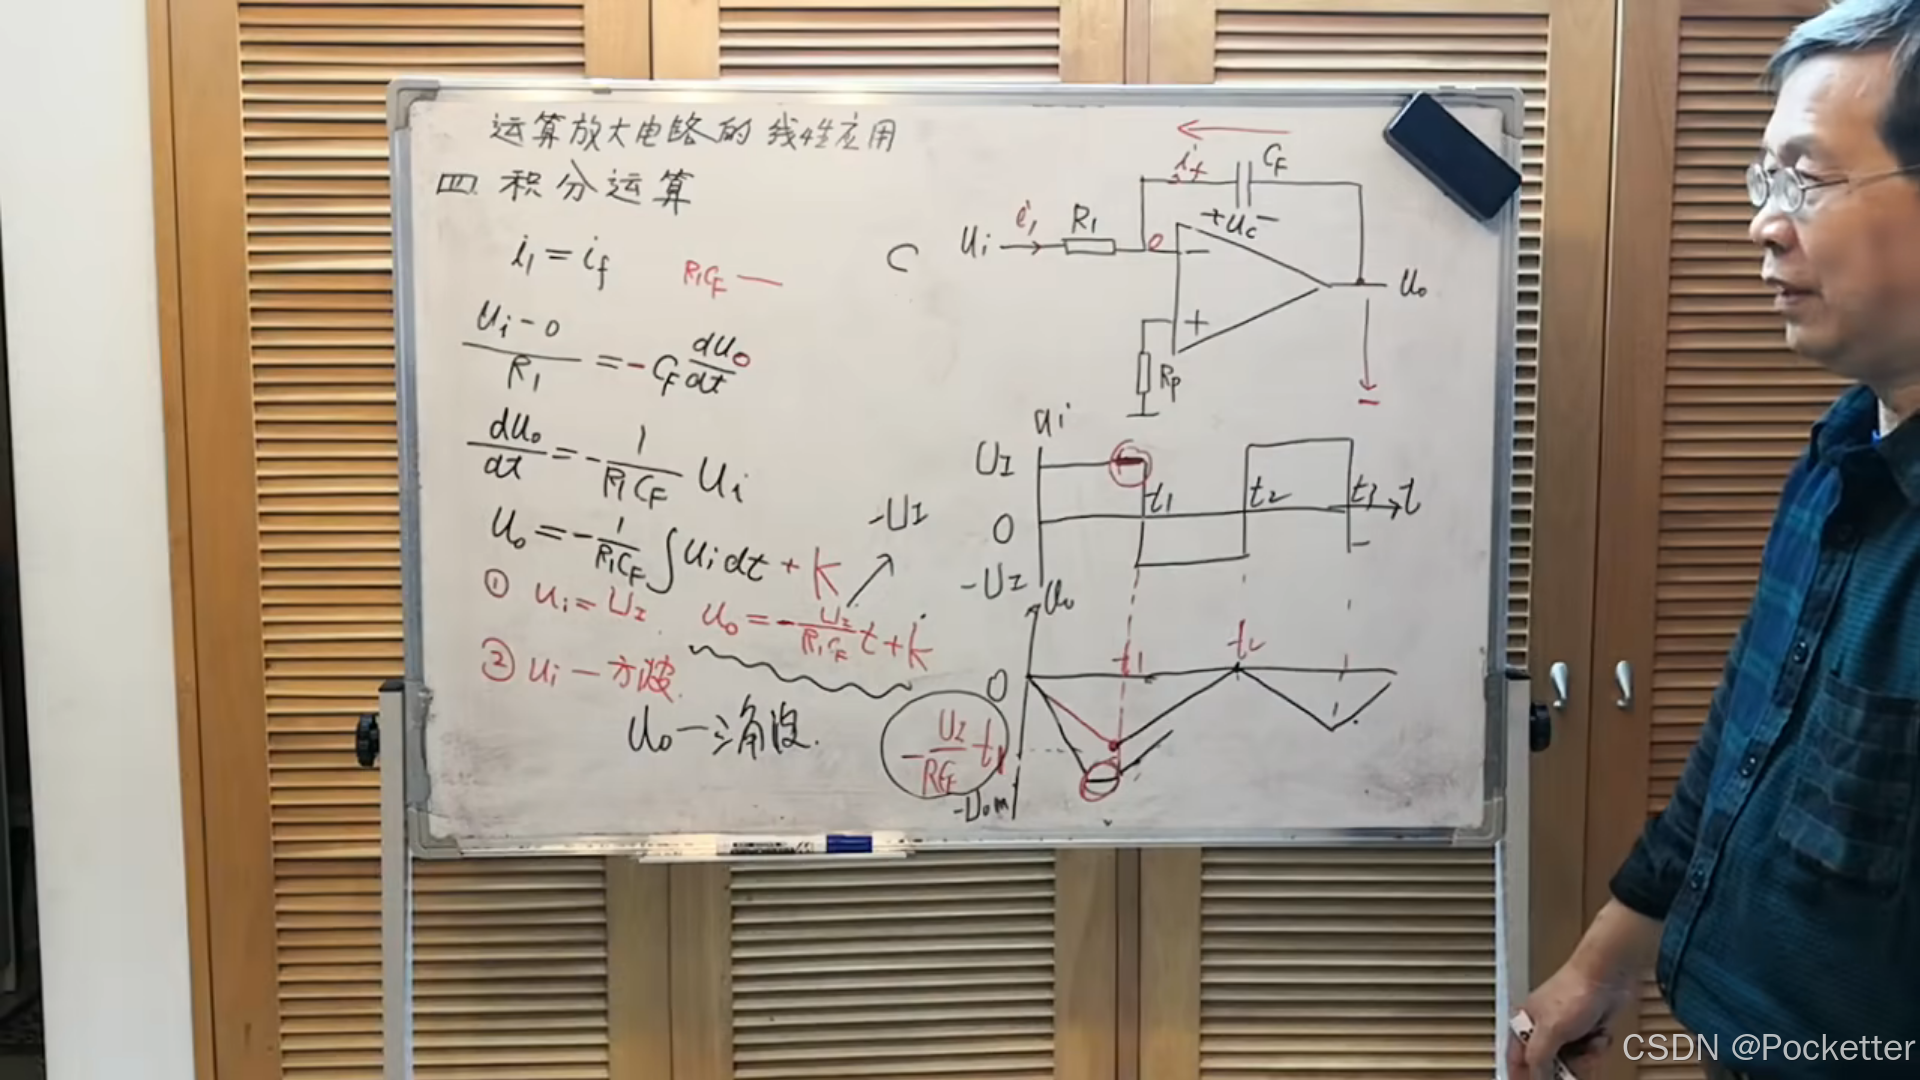 运算放大电路的线性应用
四. 积分运算
i₁ = i_f
R₁C_F —
(u_i - 0)/R₁ = -C_F du₀/dt
du₀/dt = - 1/(R₁C_F) u_i
u₀ = - 1/(R₁C_F) ∫ u_i dt + k
① u_i = U_I. u₀ = - U_I/(R₁C_F) t + k
-U_I
② u_i — 方波.
u₀ — 三角波.
C
i_f C_F
+ u_c -
u_i i₁ R₁ 0 -
u₀
+
R_p
-
u_i
U_I
t₁ t₂ t₃ t
0
-U_I
u₀
t₁ t₂
0
- U_I/(RC_F) t₁
-U_om
CSDN @Pocketter